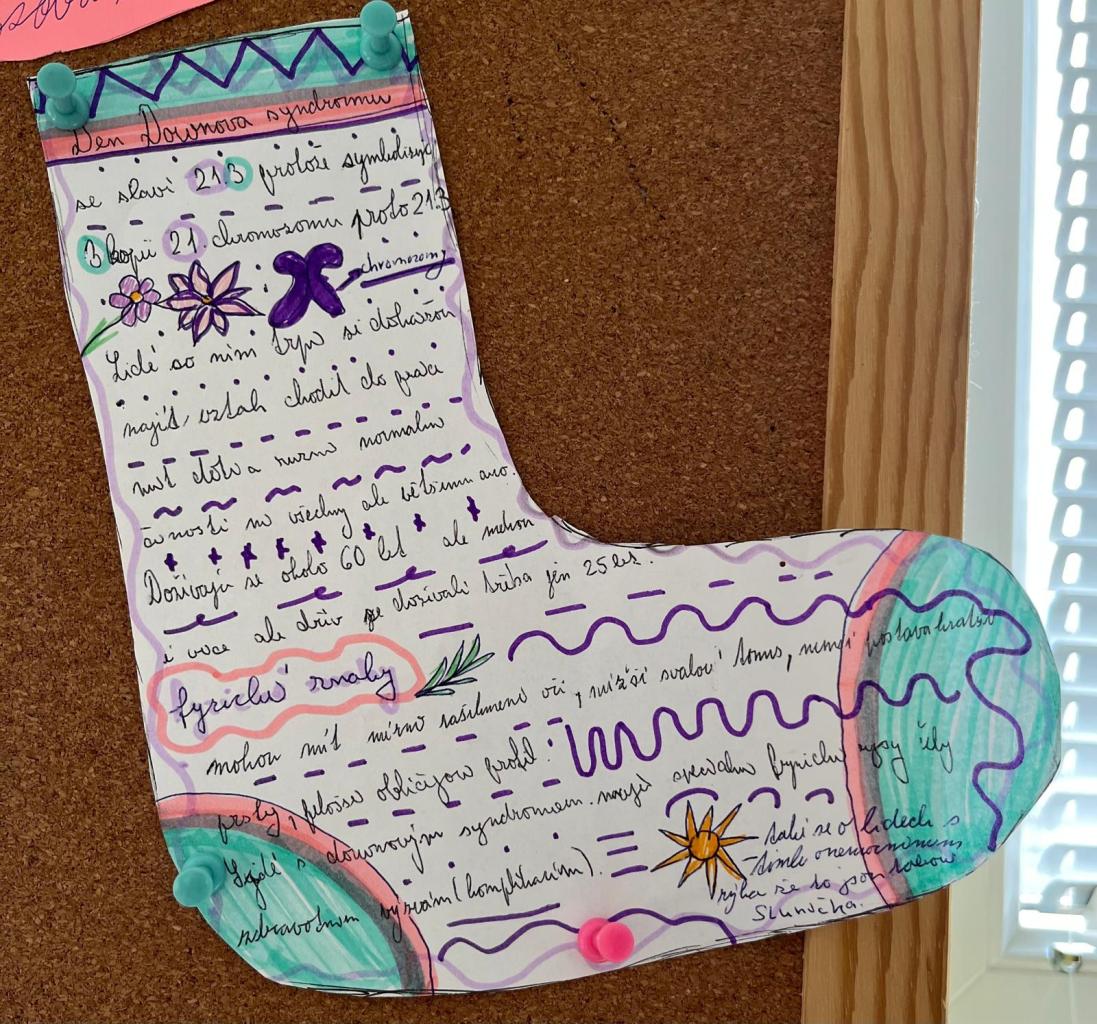 Den Downova syndromu
se slaví 21.3 protože symbolizuje
3 kopii 21. chromozomu proto 21.3
chromozomy
Lidé so ním trpí si dokážou
najít, vztah chodit do práce
mít děti a
činnosti né všechny ale většinu ano.
Dožívají se okolo 60 let ale mohou
i více ale dřív se dožívali třeba jen 25 let.
fyzické znaky
mohou mít mírně zašikmené oči, nižší svalový tonus, menší postava kratší
prsty, ploše obličejov profil.
Lidé s downovým syndromem. mají speciální fyzické rysy
zdravotním výzvám (komplikacím).
také se o lidech s
tímto onemocněním
říká že to jsou taková
Sluníčka.